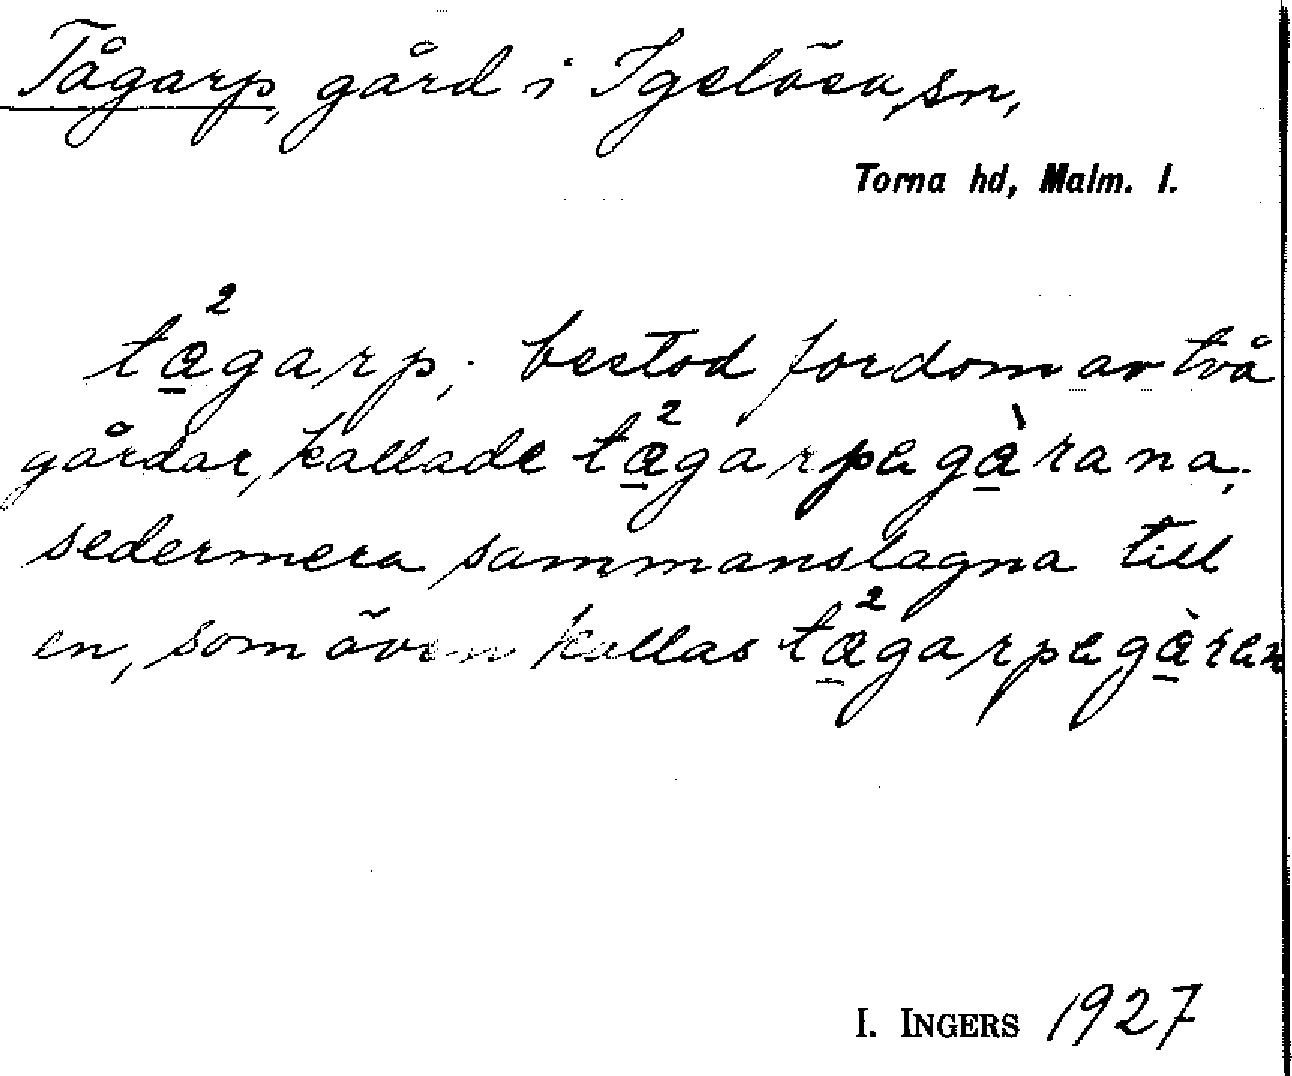 Tågarp, gård i Igelösa sn,
Torna hd, Malm. l.
ta̲²garp; bestod fordom av två
gårdar, kallade ta̲²garpagà̲rana,
sedermera sammanslagna till
en, som även kallas ta̲²garpagà̲ren
I. INGERS 1927